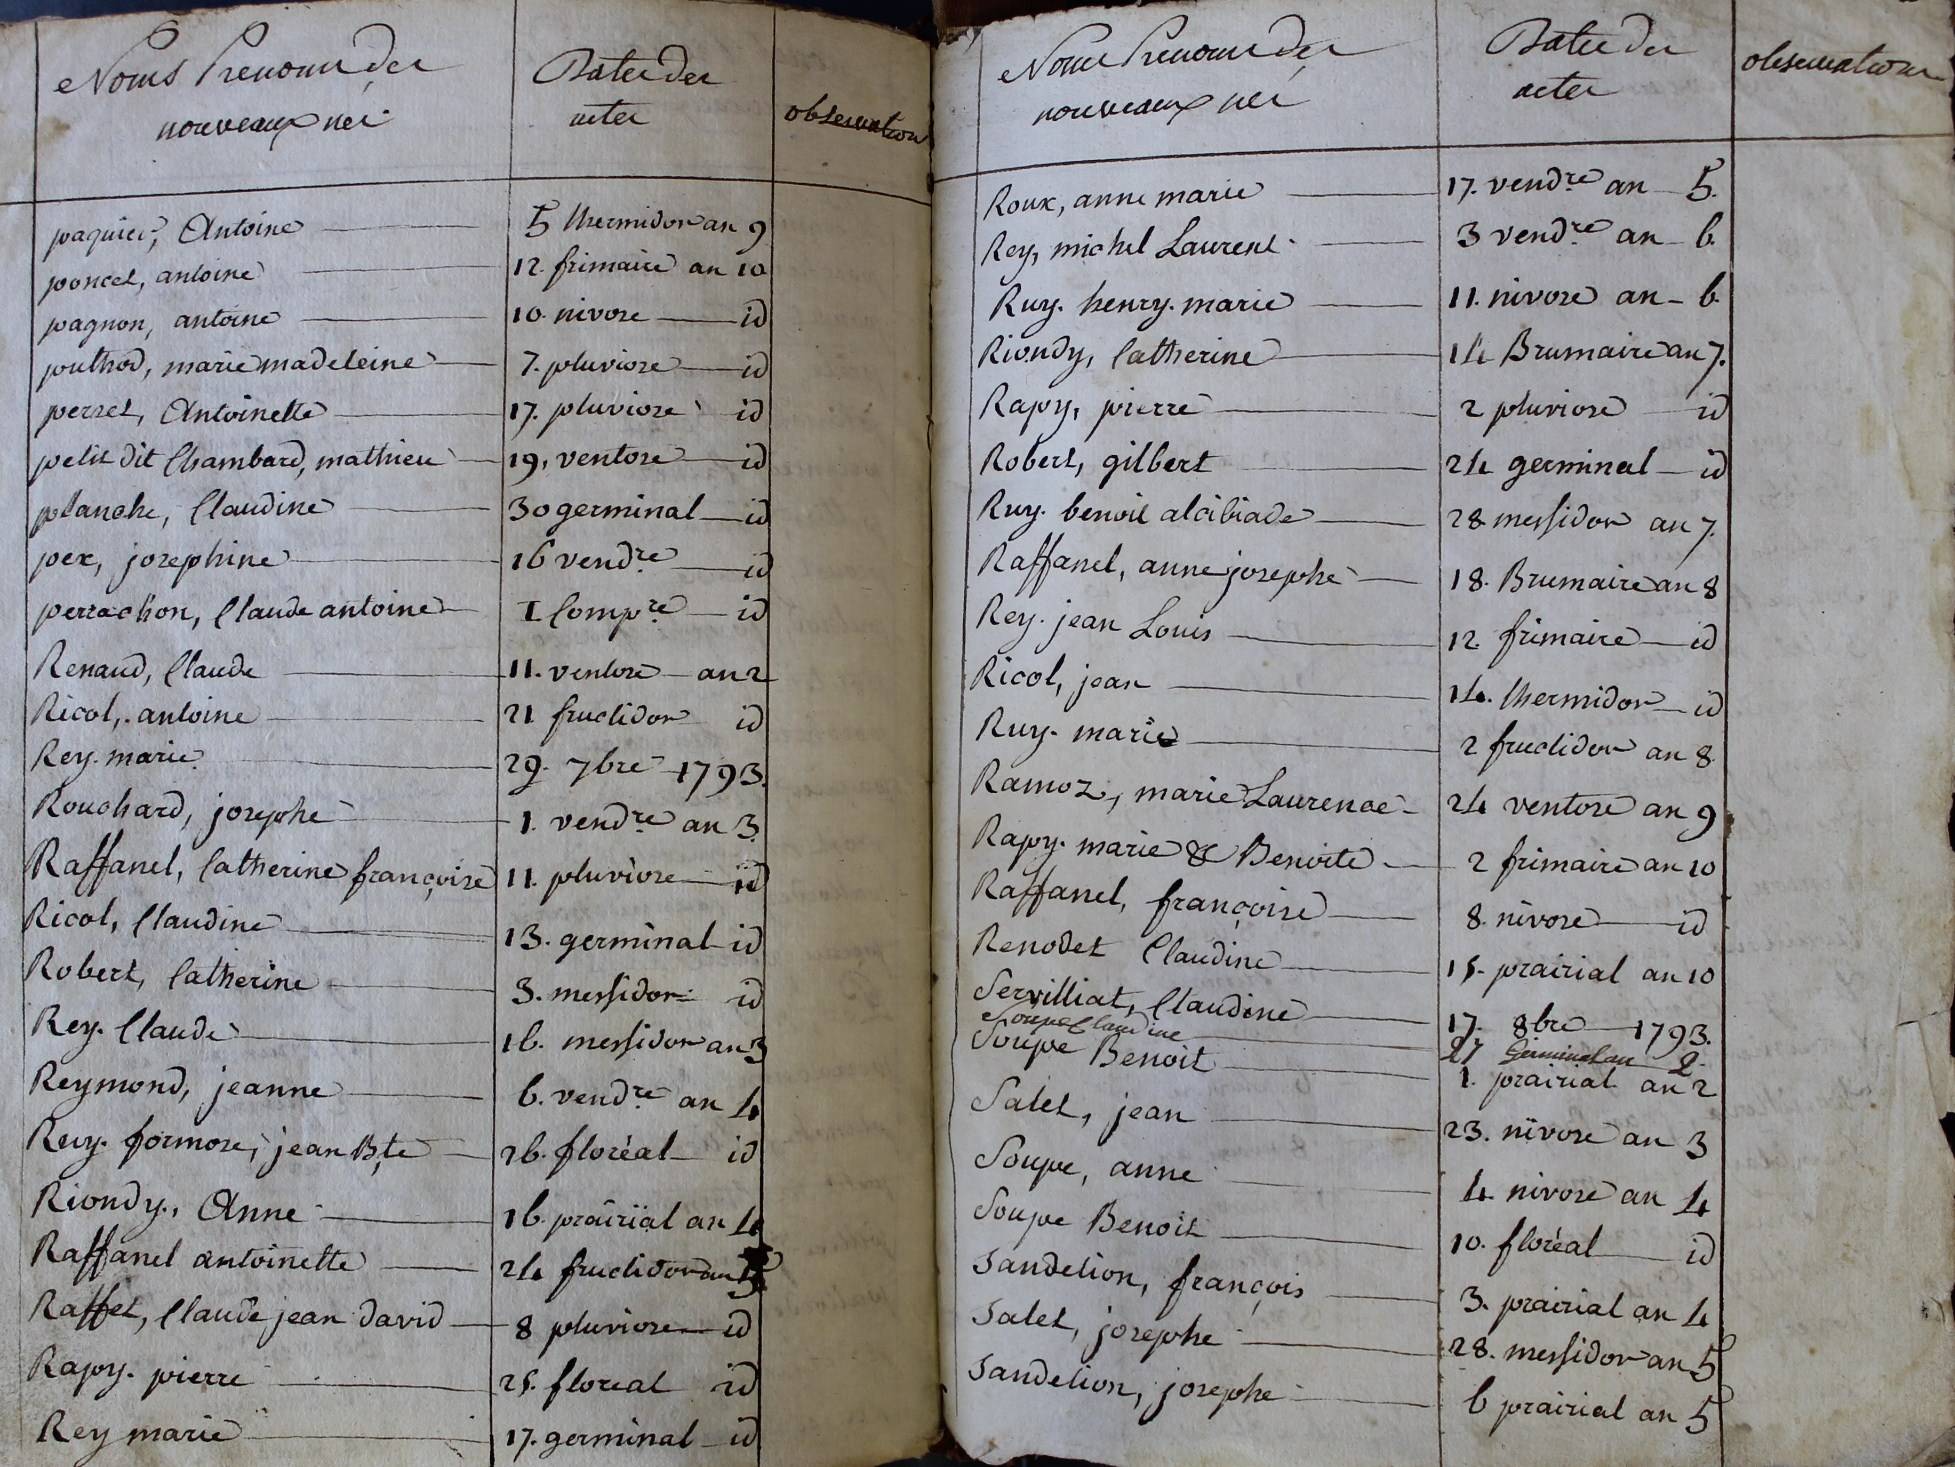 Noms Prenoms des
nouveaux nés
Dates des
actes
observations
paquier, Antoine 5 thermidor an 9
poncet, antoine 12. frimaire an 10
pagnon, antoine 10. nivose id
puthod, marie madeleine 7. pluviose id
perret, Antoinette 17. pluviose id
petit dit Chambard, mathieu 19, ventose id
planche, Claudine 30 germinal id
pex, josephine 16 vend.re id
perrachon, Claude antoine 1 Comp.re id
Renaud, Claude 11. ventose an 2
Ricol, antoine 21 fructidor id
Rey. marie 29. 7bre 1793.
Rouchard, josephe 1. vend.re an 3
Raffanel, Catherine françoise 11. pluviose id
Ricol, Claudine 13. germinal id
Robert, Catherine 3. messidor id
Rey. Claude 16. messidor an 3
Reymond, jeanne 6. vend.re an 4
Ruy. formose, jean Bte 26. floréal id
Riondy., Anne 16. prairial an 4
Raffanel antoinette 24 fructidor an 5
Raffet, Claude jean david 8 pluviose id
Rapy. pierre 25. floreal id
Rey marie 17. germinal id
Noms Prenoms des
nouveaux nés
Dates des
actes
observations
Roux, anne marie 17. vend.re an 5.
Rey, michel Laurent 3 vend.re an 6.
Ruy. henry. marie 11. nivose an 6.
Riondy, Catherine 14 Brumaire an 7.
Rapy, pierre 2 pluviose id
Robert, gilbert 24 germinal id
Ruy. benoit alcibiade 28 messidor an 7.
Raffanel, anne josephe 18. Brumaire an 8
Rey. jean Louis 12. frimaire id
Ricol, jean 14. thermidor id
Ruy. marie 2 fructidor an 8
Ramoz, marie Laurence 24 ventose an 9
Rapy. marie & Benoite 2 frimaire an 10
Raffanel, françoise 8. nivose id
Renodet Claudine 15. prairial an 10
Servilliat, Claudine 17. 8bre 1793.
Soupe Claudine 27 Germinal an 2.
Soupe Benoit 1. prairial an 2
Salet, jean 23. nivose an 3
Soupe, anne 4. nivose an 4
Soupe Benoit 10. floréal id
Sandelion, françois 3. prairial an 4
Salet, josephe 28. messidor an 5
Sandelion, josephe 6 prairial an 5